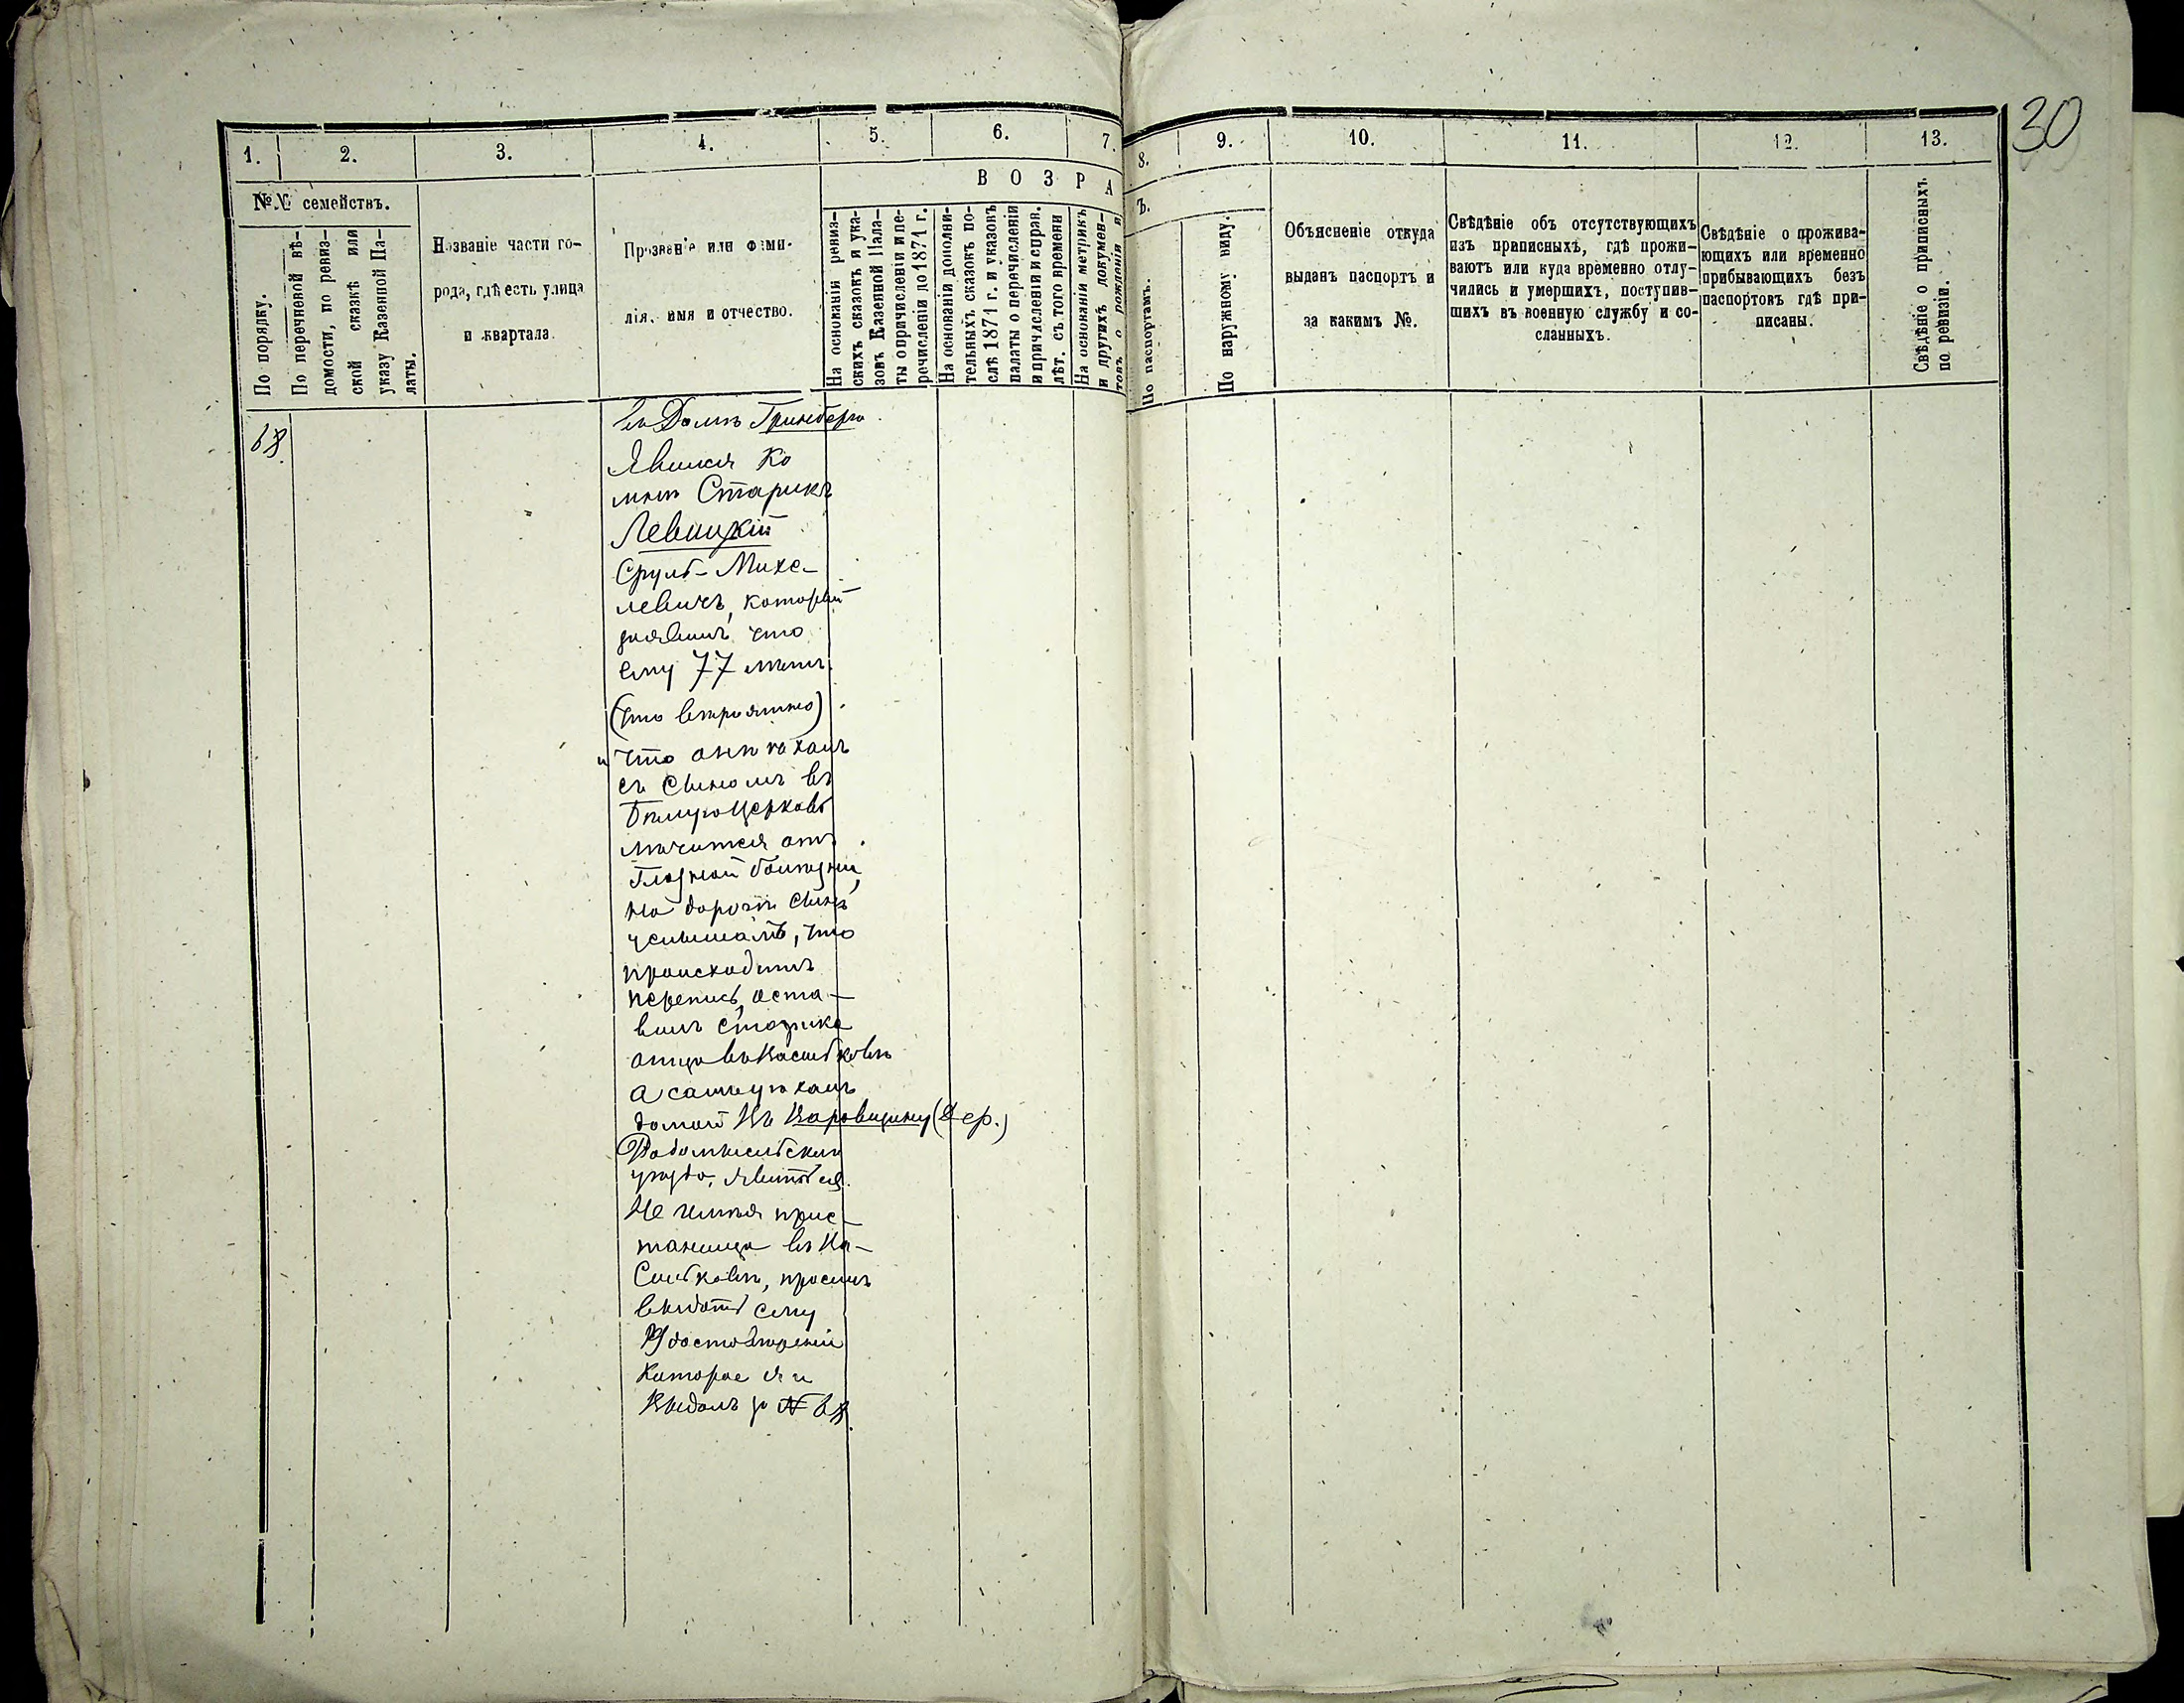 30
1. 2. 3. 4. 5. 6. 7. 8. 9. 10. 11. 12. 13.
№№ семействъ.
По порядку.
По перечневой вѣ-
домости, по ревиз-
ской сказкѣ или
указу Казенной Па-
латы.
Названіе части го-
рода, гдѣ есть улица
и квартала
Прозваніе или фами-
лія, имя и отчество.
ВОЗРА
Ъ.
На основаніи ревиз-
скихъ сказокъ и ука-
зовъ Казенной Пала-
ты о причисленіи и пе-
речисленіи до 1871 г.
На основаніи дополни-
тельныхъ сказокъ по-
слѣ 1871 г. и указовъ
палаты о перечисленіи
и причисленіи и справ.
лѣт. съ того времени
На основаніи метрикъ
и другихъ докумен-
товъ о рожденіи и
По паспортамъ.
По наружному виду.
Объясненіе откуда
выданъ паспортъ и
за какимъ №.
Свѣдѣніе объ отсутствующихъ
изъ приписныхъ, гдѣ прожи-
ваютъ или куда временно отлу-
чились и умершихъ, поступив-
шихъ въ военную службу и со-
сланныхъ.
Свѣдѣніе о прожива-
ющихъ или временно
прибывающихъ безъ
паспортовъ гдѣ при-
писаны.
Свѣдѣніе о приписныхъ
по ревизіи.
въ Домѣ Гринберга
Явился Ко
мнѣ Старикъ
Левицкій
Сруль-Михе-
левичъ, который
заявилъ что
ему 77 лѣтъ.
(что вѣроятно)
и что онъ ѣхалъ
съ сыномъ въ
Бѣлуюцерковь
лѣчится отъ
Глазной болѣзни,
на дорогѣ сынъ
услышалъ, что
происходитъ
перепись, оста-
вилъ старика
отца въ Василькова
а самъ уѣхалъ
домой Къ Каровщину (Дер.)
Радомысльскаго
уѣзда, явиться.
Не имѣя прис-
танища въ Ва-
сильковѣ, проситъ
выдать ему
Удостовѣреніе
Которое я и
Выдалъ за №